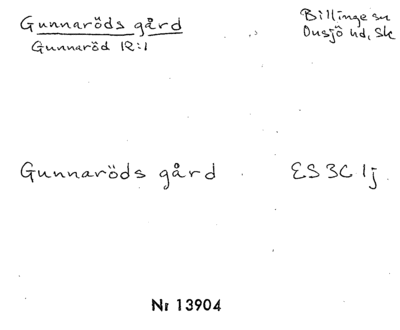 Gunnaröds gård
Gunnaröd 12:1
Billinge sn
Onsjö hd, Sk
Gunnaröds gård
ES 3C 1j
Nr 13904